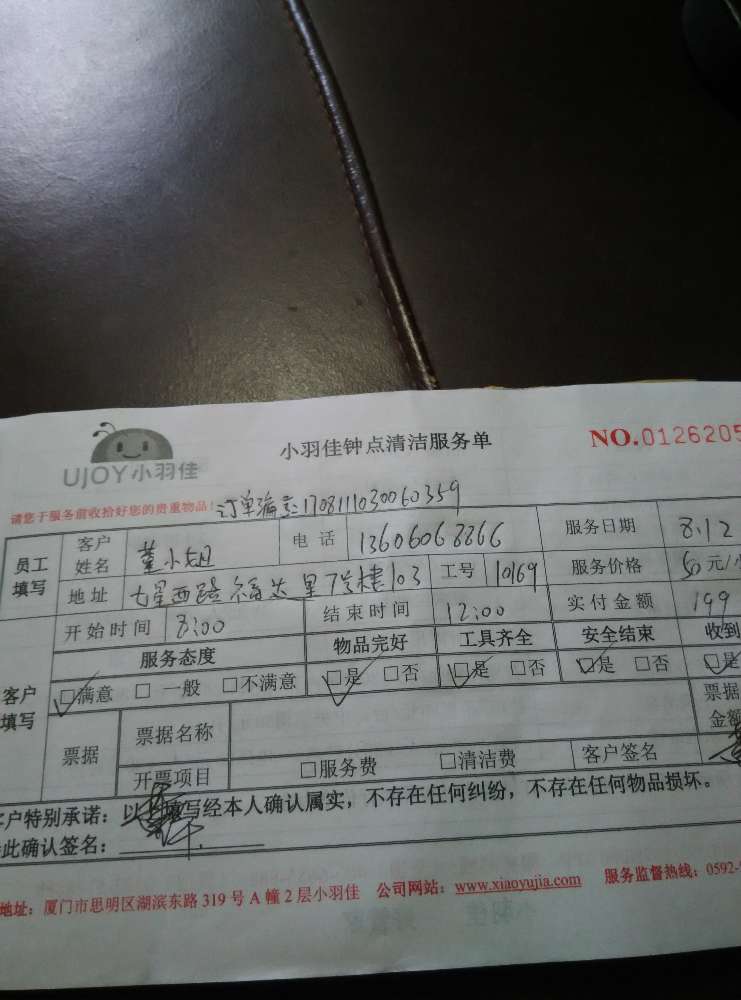 UJOY小羽佳
小羽佳钟点清洁服务单
NO.0126205
请您于服务前收拾好您的贵重物品！订单编号:170811030060359
员工填写 客户姓名 董小姐 电话 13606068866 服务日期 8.12
地址 七星西路 福达里7号楼103 工号 10169 服务价格 50元/
开始时间 8:00 结束时间 12:00 实付金额 199
客户填写 服务态度 物品完好 工具齐全 安全结束 收到
□满意 □一般 □不满意 □是 □否 □是 □否 □是 □否 □是
票据 票据名称 票据金额
开票项目 □服务费 □清洁费 客户签名
客户特别承诺：以上填写经本人确认属实，不存在任何纠纷，不存在任何物品损坏。
此确认签名：
地址：厦门市思明区湖滨东路319号A幢2层小羽佳 公司网站：www.xiaoyujia.com 服务监督热线：0592-